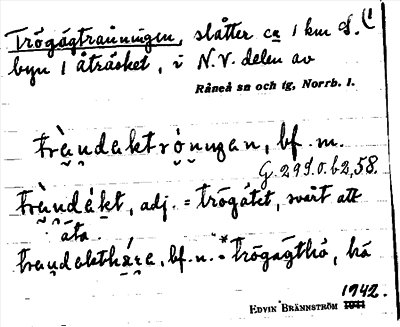 Trögågtranningen, slåtter ca 1 km S. (1
byn i Åträsket, i N.V. delen av
Råneå sn och tg, Norrb. l.
trändaktröningan, bf. m.
G. 291.o.b2,58.
trändäkt, adj. = trögätet, svårt att
äta.
trandakthäre, bf. n. = *trögägthö, hä
1942.
EDVIN BRÄNNSTRÖM 1941